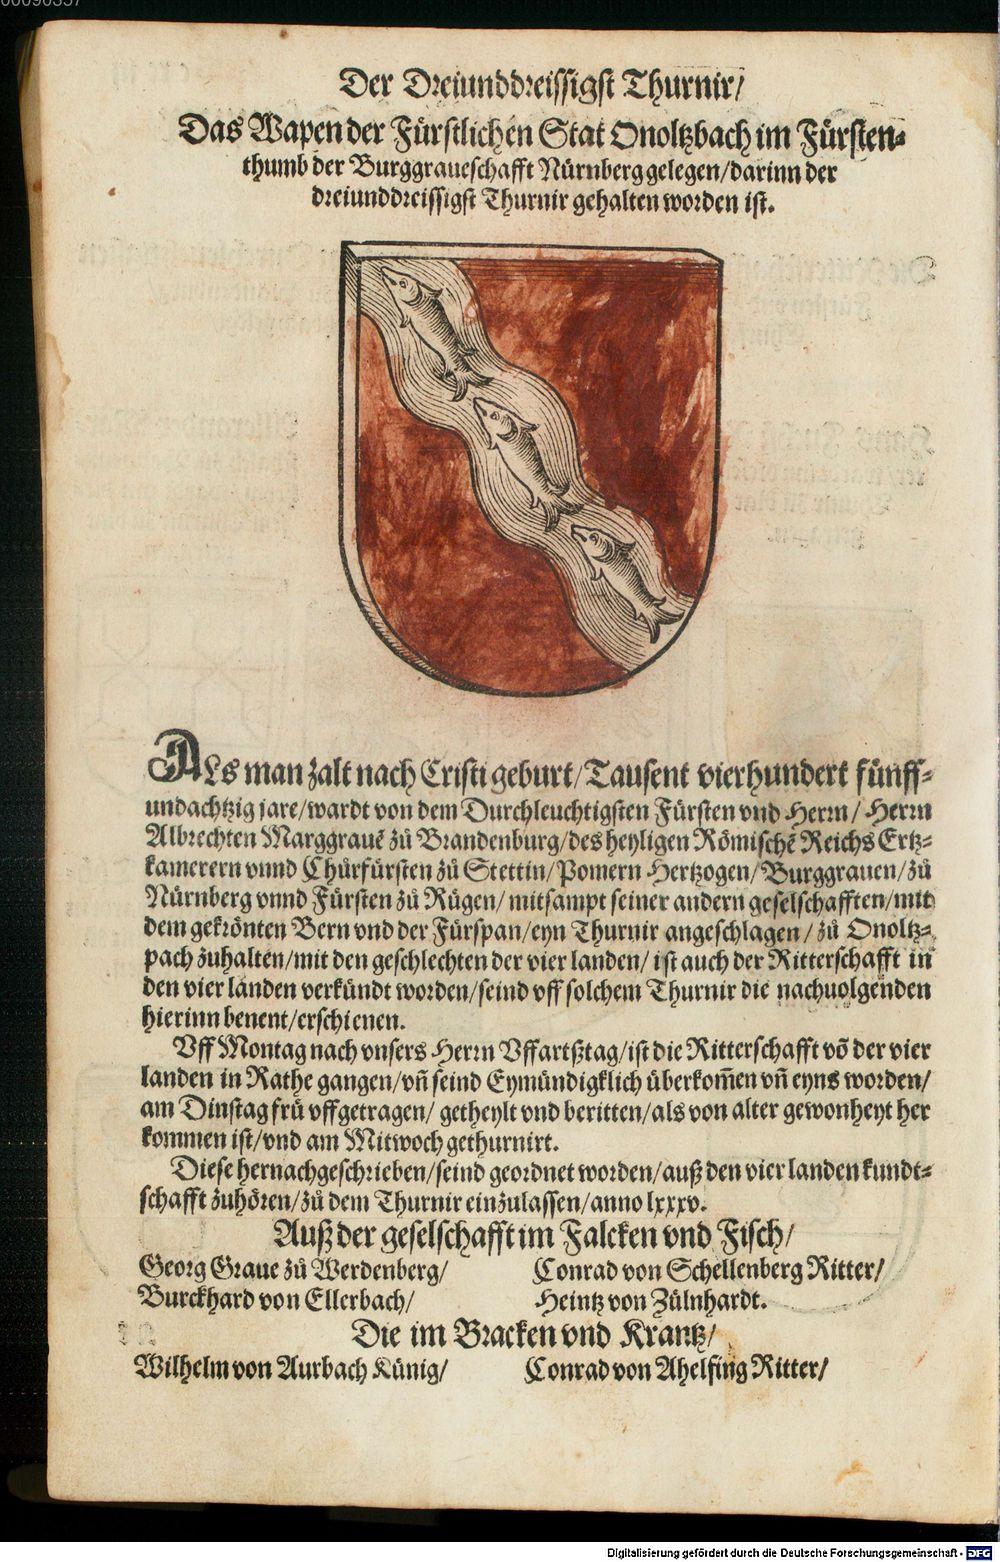 Der Dreiunddreissigst Thurnir/
Das Wapen der Fürstlichen Stat Onoltzbach im Fürsten-
thumb der Burggraueschafft Nürnberg gelegen/darinn der
dreiunddreissigst Thurnir gehalten worden ist.
ALs man zalt nach Cristi geburt/Tausent vierhundert fünff-
undachtzig jare/wardt von dem Durchleuchtigsten Fürsten vnd Herrn/ Herrn
Albrechten Marggrauē zů Brandenburg/des heyligen Römischē Reichs Ertz-
kamerern vnnd Chůrfürsten zů Stettin/Pomern Hertzogen/Burggrauen/zů
Nürnberg vnnd Fürsten zů Rügen/mitsampt seiner andern geselschafften/mit
dem gekrönten Bern vnd der Fürspan/eyn Thurnir angeschlagen/zů Onoltz-
pach zuhalten/mit den geschlechten der vier landen/ist auch der Ritterschafft in
den vier landen verkündt worden/seind vff solchem Thurnir die nachuolgenden
hierinn benent/erschienen.
Vff Montag nach vnsers Herrn Vffartßtag/ist die Ritterschafft vō der vier
landen in Rathe gangen/vñ seind Eymündigklich überkom̄en vñ eyns worden/
am Dinstag frü vffgetragen/ getheylt vnd beritten/als von alter gewonheyt her
kommen ist/vnd am Mitwoch gethurnirt.
Diese hernachgeschrieben/seind geordnet worden/auß den vier landen kundt-
schafft zuhören/zů dem Thurnir einzulassen/anno lxxxv.
Auß der geselschafft im Falcken vnd Fisch/
Georg Graue zů Werdenberg/
Burckhard von Ellerbach/
Conrad von Schellenberg Ritter/
Heintz von Zülnhardt.
Die im Bracken vnd Krantz/
Wilhelm von Aurbach Künig/
Conrad von Ahelfing Ritter/
Digitalisierung gefördert durch die Deutsche Forschungsgemeinschaft - DFG